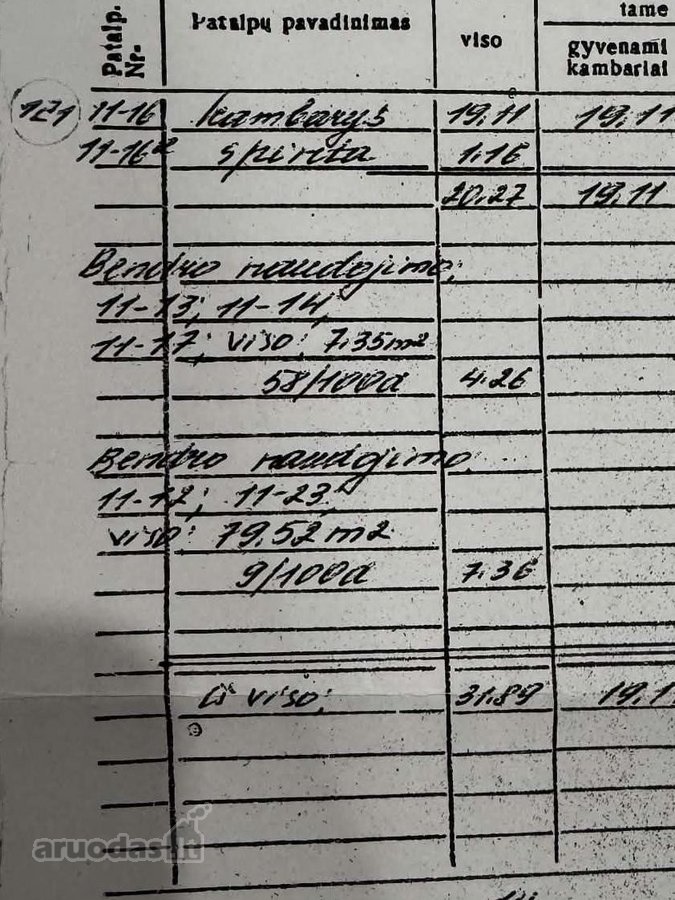 Patalp. Nr.
Patalpų pavadinimas
viso
tame
gyvenami kambariai
121 11-16 kambarys 19,11 19,11
11-16a spinta 1.16
20.27 19,11
Bendro naudojimo;
11-13; 11-14,
11-17; viso; 7.35m2
58/100d 4.26
Bendro naudojimo,
11-12; 11-23,
viso: 79.52 m2
9/100d 7.36
iš viso; 31.89 19.1
aruodas.lt